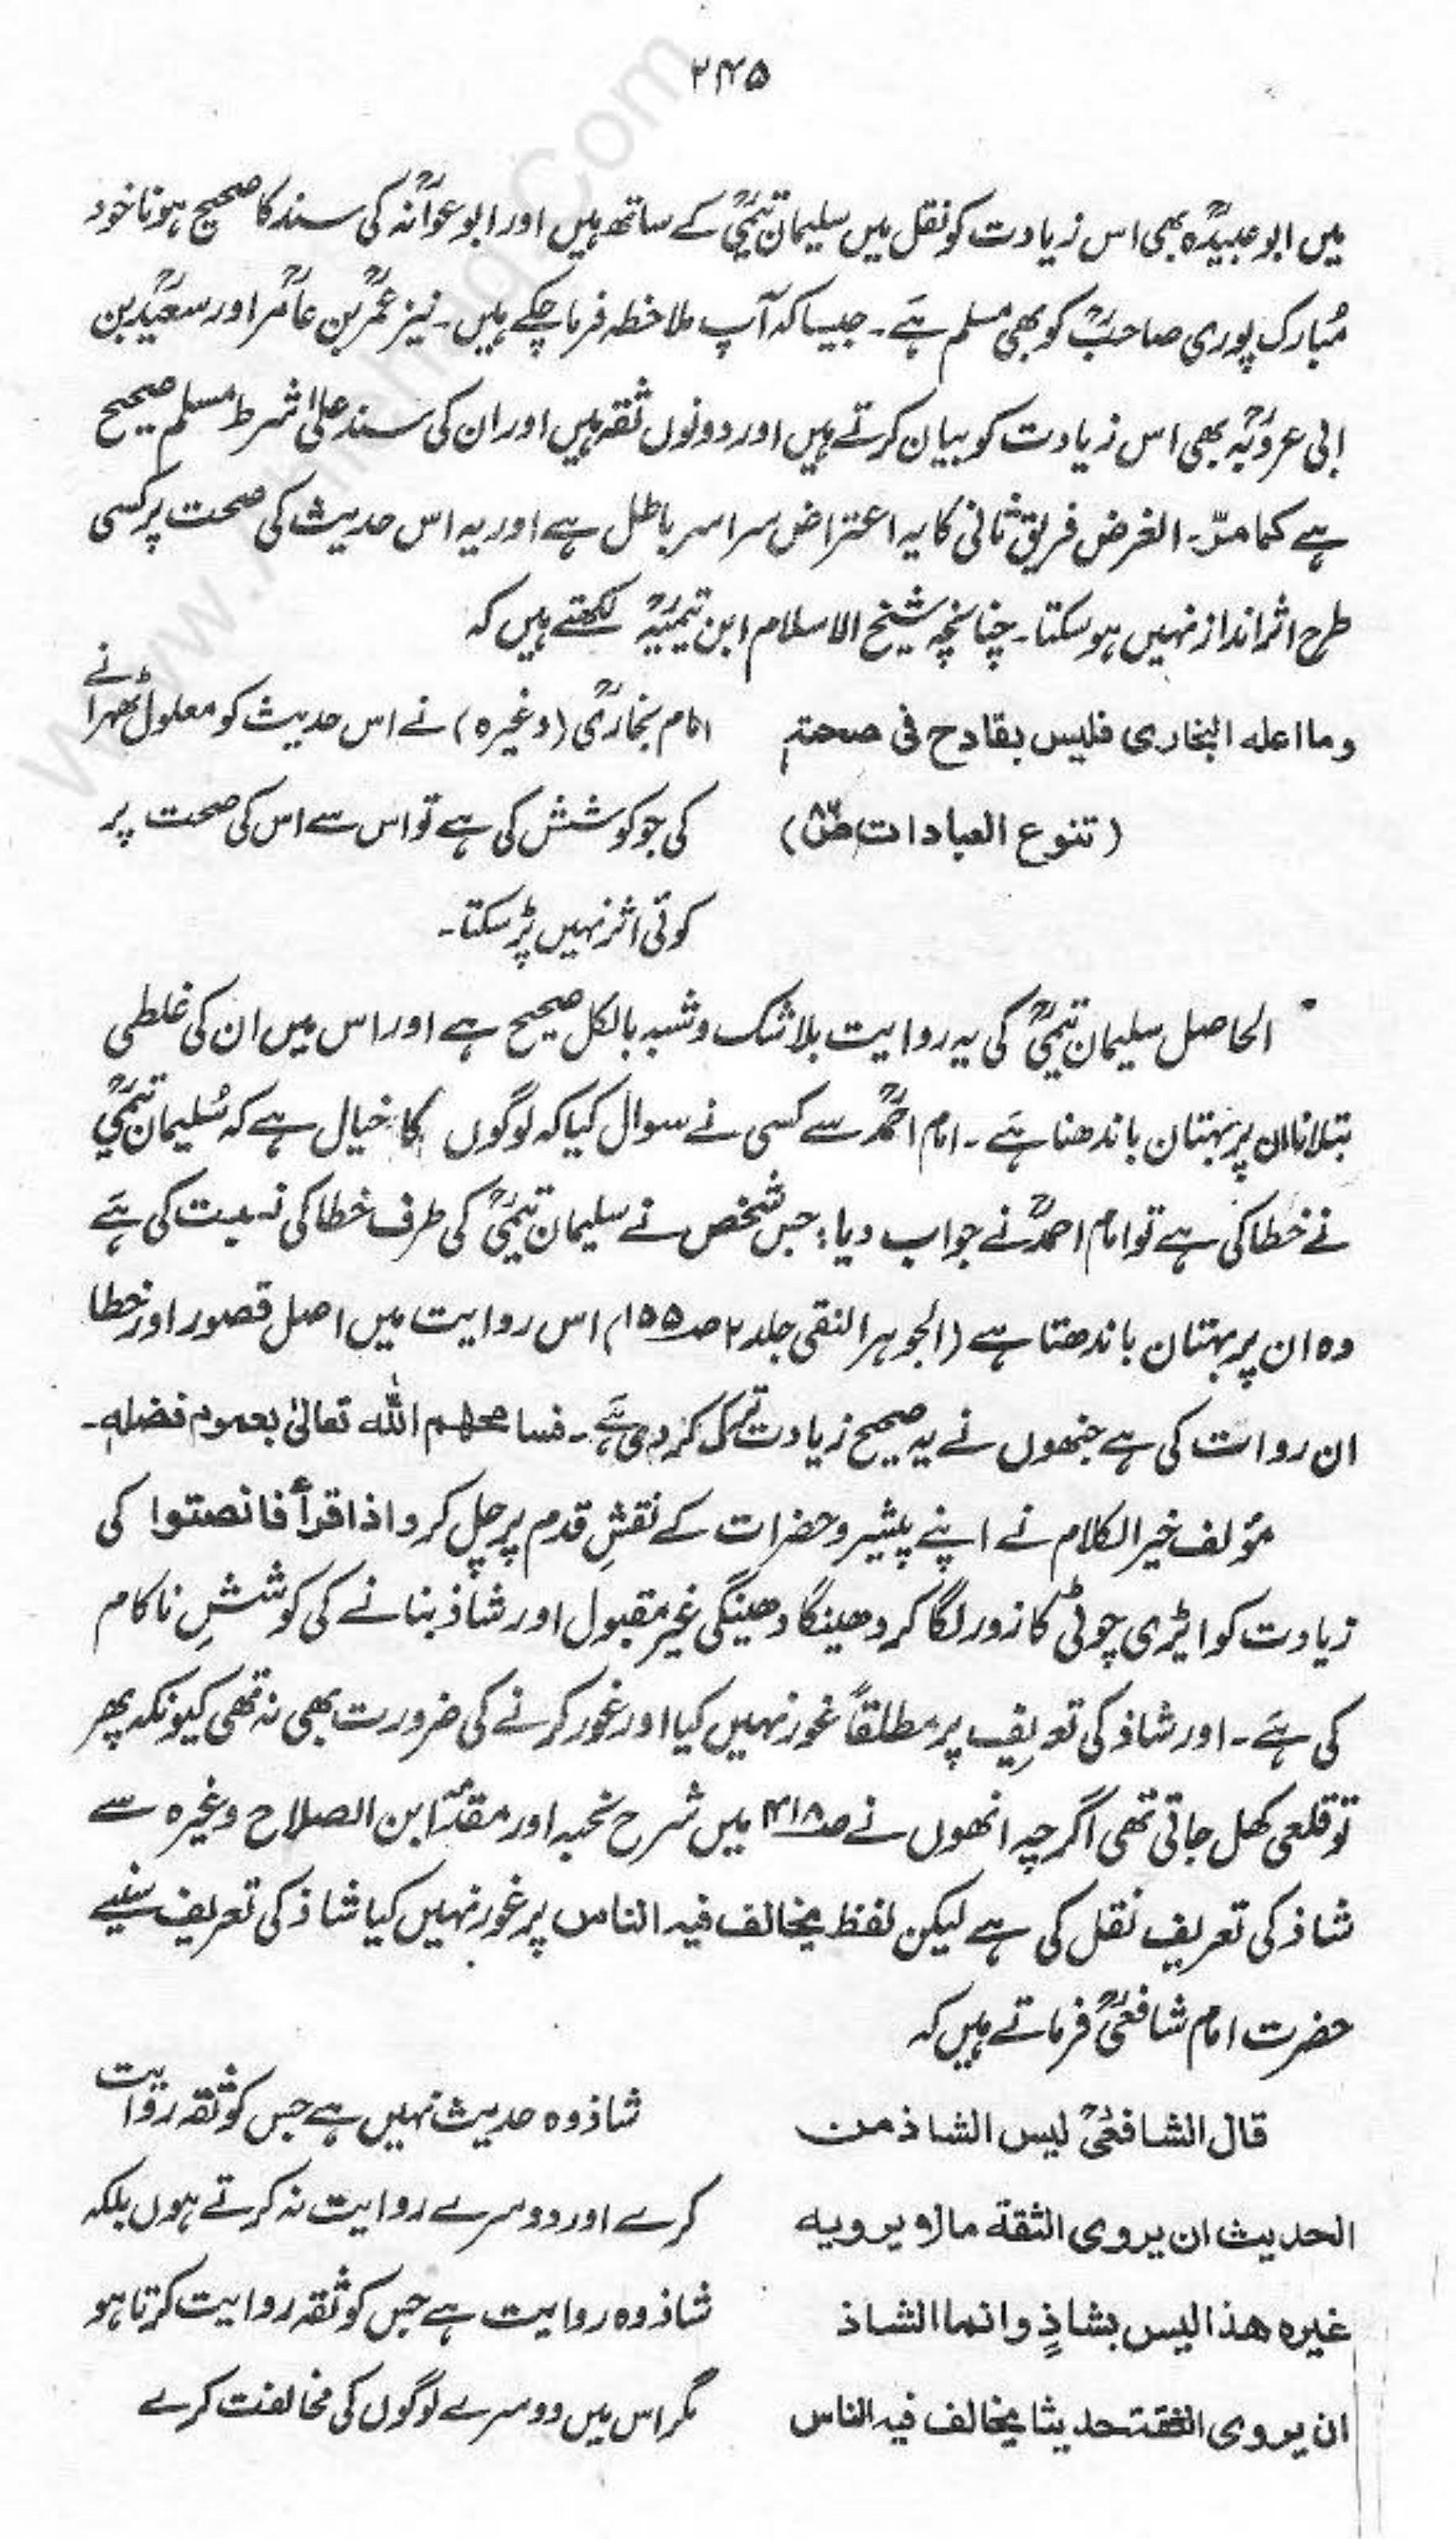 ۲۴۵
میں ابو عبیدہؒ بھی اس زیادت کو نقل میں سلیمان تیمیؒ کے ساتھ ہیں اور ابو عوانہؒ کی سند کا صحیح ہونا خود
مُبارک پوری صاحبؒ کو بھی مسلم ہَے۔ جیسا کہ آپ ملاحظہ فرما چکے ہیں۔ نیز عمرؒ بن عامرؒ اور سعیدؒ بن
ابی عروبہؒ بھی اس زیادت کو بیان کرتے ہیں اور دونوں ثقہ ہیں اور ان کی سند علیٰ شرط مسلم صحیح
ہے کما مرّ۔ الغرض فریق ثانی کا یہ اعتراض سراسر باطل ہے اور یہ اس حدیث کی صحت پر کسی
طرح اثر انداز نہیں ہو سکتا۔ چنانچہ شیخ الاسلام ابن تیمیہؒ لکھتے ہیں کہ
وما اعله البخاری فلیس بقادح فی صحته
(تنوع العبادات ص۸۶)
امام بخاریؒ (وغیرہ) نے اس حدیث کو معلول ٹھہرانے
کی جو کوشش کی ہے تو اس سے اس کی صحت پر
کوئی اثر نہیں پڑ سکتا۔
الحاصل سلیمان تیمیؒ کی یہ روایت بلا شک و شبہ بالکل صحیح ہے اور اس میں ان کی غلطی
بتلانا ان پر بہتان باندھنا ہَے۔ امام احمدؒ سے کسی نے سوال کیا کہ لوگوں کا خیال ہے کہ سُلیمان تیمیؒ
نے خطا کی ہے تو امام احمدؒ نے جواب دیا؛ جس شخص نے سلیمان تیمیؒ کی طرف خطا کی نسبت کی ہَے
وہ ان پر بہتان باندھتا ہے (الجوہر النقی جلد ۲ صـ۱۵۵) اس روایت میں اصل قصور اور خطا
ان روات کی ہے جنھوں نے یہ صحیح زیادت ترک کر دی ہَے۔ فسامحهم الله تعالیٰ بعموم فضله۔
مؤلف خیر الکلام نے اپنے پیشرو حضرات کے نقشِ قدم پر چل کر واذا قرأ فانصتوا کی
زیادت کو ایڑی چوٹی کا زور لگا کر دھینگا دھینگی غیر مقبول اور شاذ بنانے کی کوششِ ناکام
کی ہَے۔ اور شاذ کی تعریف پر مطلقاً غور نہیں کیا اور غور کرنے کی ضرورت بھی نہ تھی کیونکہ پھر
تو قلعی کھل جاتی تھی اگرچہ انھوں نے صـ۴۱۸ میں شرح نخبہ اور مقدمہ ابن الصلاح وغیرہ سے
شاذ کی تعریف نقل کی ہے لیکن لفظ یخالف فیه الناس پر غور نہیں کیا شاذ کی تعریف سنیے
حضرت امام شافعیؒ فرماتے ہیں کہ
قال الشافعیؒ لیس الشاذ من
الحدیث ان یروی الثقة مالم یرویه
غیره هذا لیس بشاذٍ وانما الشاذ
ان یروی الثقة حدیثا یخالف فیه الناس
شاذ وہ حدیث نہیں ہے جس کو ثقہ روایت
کرے اور دوسرے روایت نہ کرتے ہوں بلکہ
شاذ وہ روایت ہے جس کو ثقہ روایت کرتا ہو
مگر اس میں دوسرے لوگوں کی مخالفت کرے